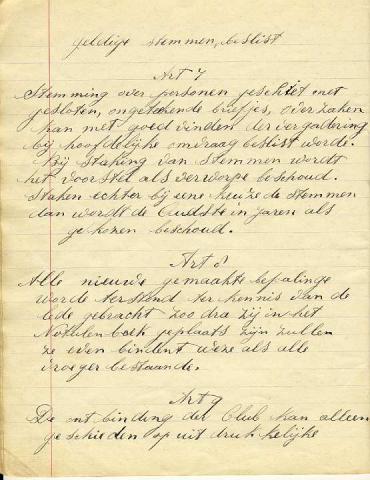 geldige stemmen, beslist
Art 7
Stemming over personen geschiet met
gesloten, ongetekende briefjes, over zaken
kan met goedvinden der vergadering
bij hoofdelijke omvraag beslist worde.
Bij staking van stemmen wordt
het voorstel als verworpe beschoud.
Staken echter bij eene keuze de stemmen
dan wordt de Oudste in jaren als
gekozen beschoud.
Art 8
Alle nieuwe gemaakte bepalinge
worde terstond ter kennis van de
lede gebracht zoo dra zij in het
Notulen boek geplaats zijn zullen
ze even bindent weze als alle
vroeger bestaande.
Art 9
De ontbinding der Club kan alleen
geschieden op uit druk kelijke